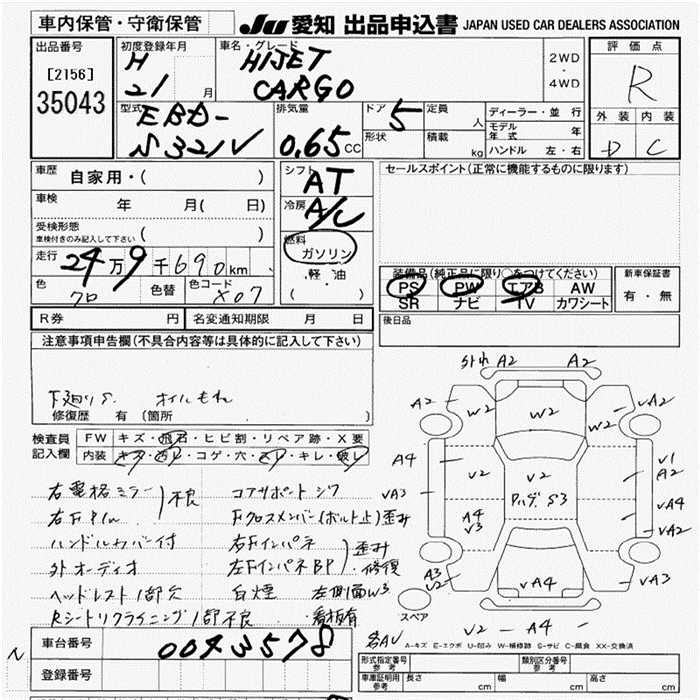 車内保管・守衛保管
JU 愛知 出品申込書 JAPAN USED CAR DEALERS ASSOCIATION
出品番号
[2156]
35043
初度登録年月
H
21 月
車名・グレード
HIJET
CARGO
2WD
・
4WD
評価点
R
外装 内装
D C
型式
EBD-
S321V
排気量
0.65 CC
ドア 5
形状
定員 人
積載 kg
ディーラー・並行
モデル年式 年
ハンドル 左・右
車歴 自家用・( )
車検 年 月( 日)
受検形態
車検付きのみ記入して下さい ( )
走行 24万9千690km
色 クロ 色替 色コード X07
シフト AT
冷房 A/C
燃料
ガソリン
・軽油
( )
セールスポイント(正常に機能するものに限ります)
装備品(純正品に限り○をつけてください)
PS PW エアB AW
SR ナビ TV カワシート
新車保証書
有・無
R券 円 名変通知期限 月 日
後日品
注意事項申告欄(不具合内容等は具体的に記入して下さい)
下廻りS オイルもれ
修復歴 有(箇所 )
検査員
記入欄
FW キズ・飛石・ヒビ割・リペア跡・X要
内装 キズ・汚レ・コゲ・穴・スレ・キレ・破レ
右電格ミラー 不良 コアサポートシワ
Fクロスメンバー(ボルト止)歪み
ハンドルカバー付 右Fインパネ 歪み
外オーディオ 左FインパネBP 修復
ヘッドレスト1部欠 白煙 左側面W3
Rシートリクライニング1部不良 看板有
A2 A2
A2 W2 W2 W2 VA2
A4 V2 V2 V1
A2
VA3 S3 VA2
A4
V3
VA2
A3
V2 VA4 VA3
スペア
V2 A4
各AU
A-キズ E-エクボ U-凹み W-補修跡 S-サビ C-腐食 XX-交換済
車台番号 0043578
登録番号
形式指定番号
参考
類別区分番号
参考
車庫証明用
参考
長さ cm 幅 cm 高さ cm